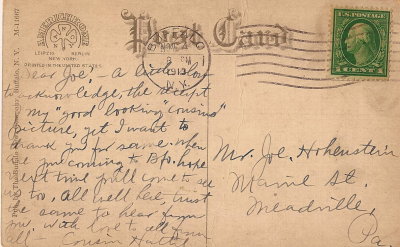 Post Card
LEIPZIG BERLIN
NEW YORK
PRINTED IN THE UNITED STATES
M-11667
Buffalo, N. Y.
NOV 4
8 PM
1913
N.Y.
U.S. POSTAGE
Dear Joe; - A little slow
to acknowledge, the receipt
my "good looking cousins"
picture, yet I want to
thank you for same. When
are you coming to Bflo. hope
next time you'll come to see
us too. All well here, trust
the same to hear from
you. With love to all from
all. Cousin Hattie
Mr. Joe. Hohenstein
Maine St.
Meadville,
Pa.